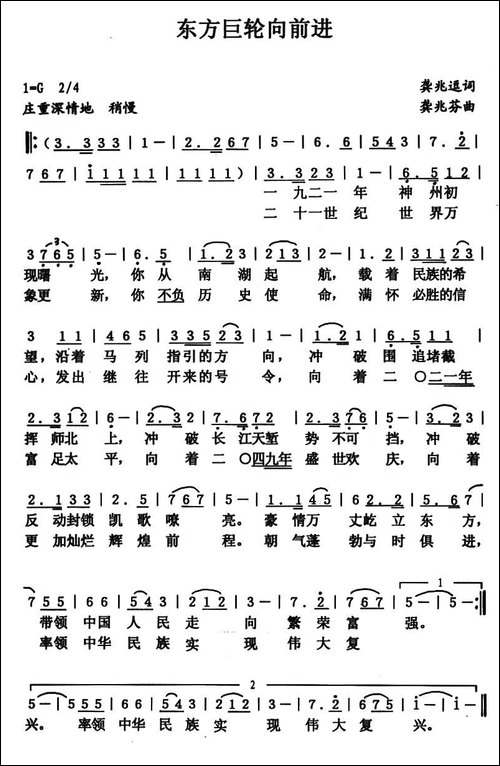 东方巨轮向前进
1=G 2/4
龚兆逗词
庄重深情地 稍慢
龚兆芬曲
(3. 3 3 3 | 1 - | 2. 2 6 7 | 5 - | 6. 5 6 | 1 2 3 | 5 - | 5 - |
7 6 7 | i 1 1 1 | 1 1 1 1 1 | 1 ) | 3. 3 2 3 | 1 - | 6. 5 1 2 |
一 九二一 年 神 州初
二 十一世 纪 世 界万
3 7 6 5 | 5 - | 6. 5 | 1. 2 3 | 5. 3 | 2 - | 2. 1 | 3 1 1 2 3 |
现曙 光, 你 从 南 湖起 航, 载 着 民族的希
象更 新, 你 不负 历 史使 命, 满 怀 必胜的信
3 1 1 | 4 6 5 | 3 3 5 2 3 | 1 - | 1. 2 1 | 6. 5 1 1 |
望, 沿着 马 列 指引的方 向, 冲 破 围 追堵截
心, 发出 继 往 开来的号 令, 向 着 二 〇二一年
2. 3 1 2 | 6 - | 2. 3 2 | 7. 6 7 2 | 2. 3 7 6 | 5 - | 3. 2 3 |
挥 师北 上, 冲 破 长 江天堑 势 不可 挡, 冲 破
富 足太 平, 向 着 二 〇四九年 盛 世欢 庆, 向 着
2. 1 3 3 | 2. 3 2 5 | 7 6 7 | 5 - | 1. 1 4 5 | 6 2. 2 | 5. 6 7 |
反 动封锁 凯 歌 嘹 亮。 豪 情万 丈屹 立 东 方,
更 加灿烂 辉 煌 前 程。 朝 气蓬 勃与 时 俱 进,
7 5 5 | 6 6 | 5 4 3 | 2 1 2 | 3 - | 7. 2 | 7 6 7 | 5 - | 5 - :|
1
带领 中国 人 民 走 向 繁 荣 富 强。
率领 中华 民 族 实 现 伟 大 复
2
5 - | 5 5 5 | 6 6 | 5 4 3 | 2 1 2 | 3 - | 7. 2 | 7 6 7 | i - | i - ‖
兴。 率领 中华 民 族 实 现 伟 大 复 兴。